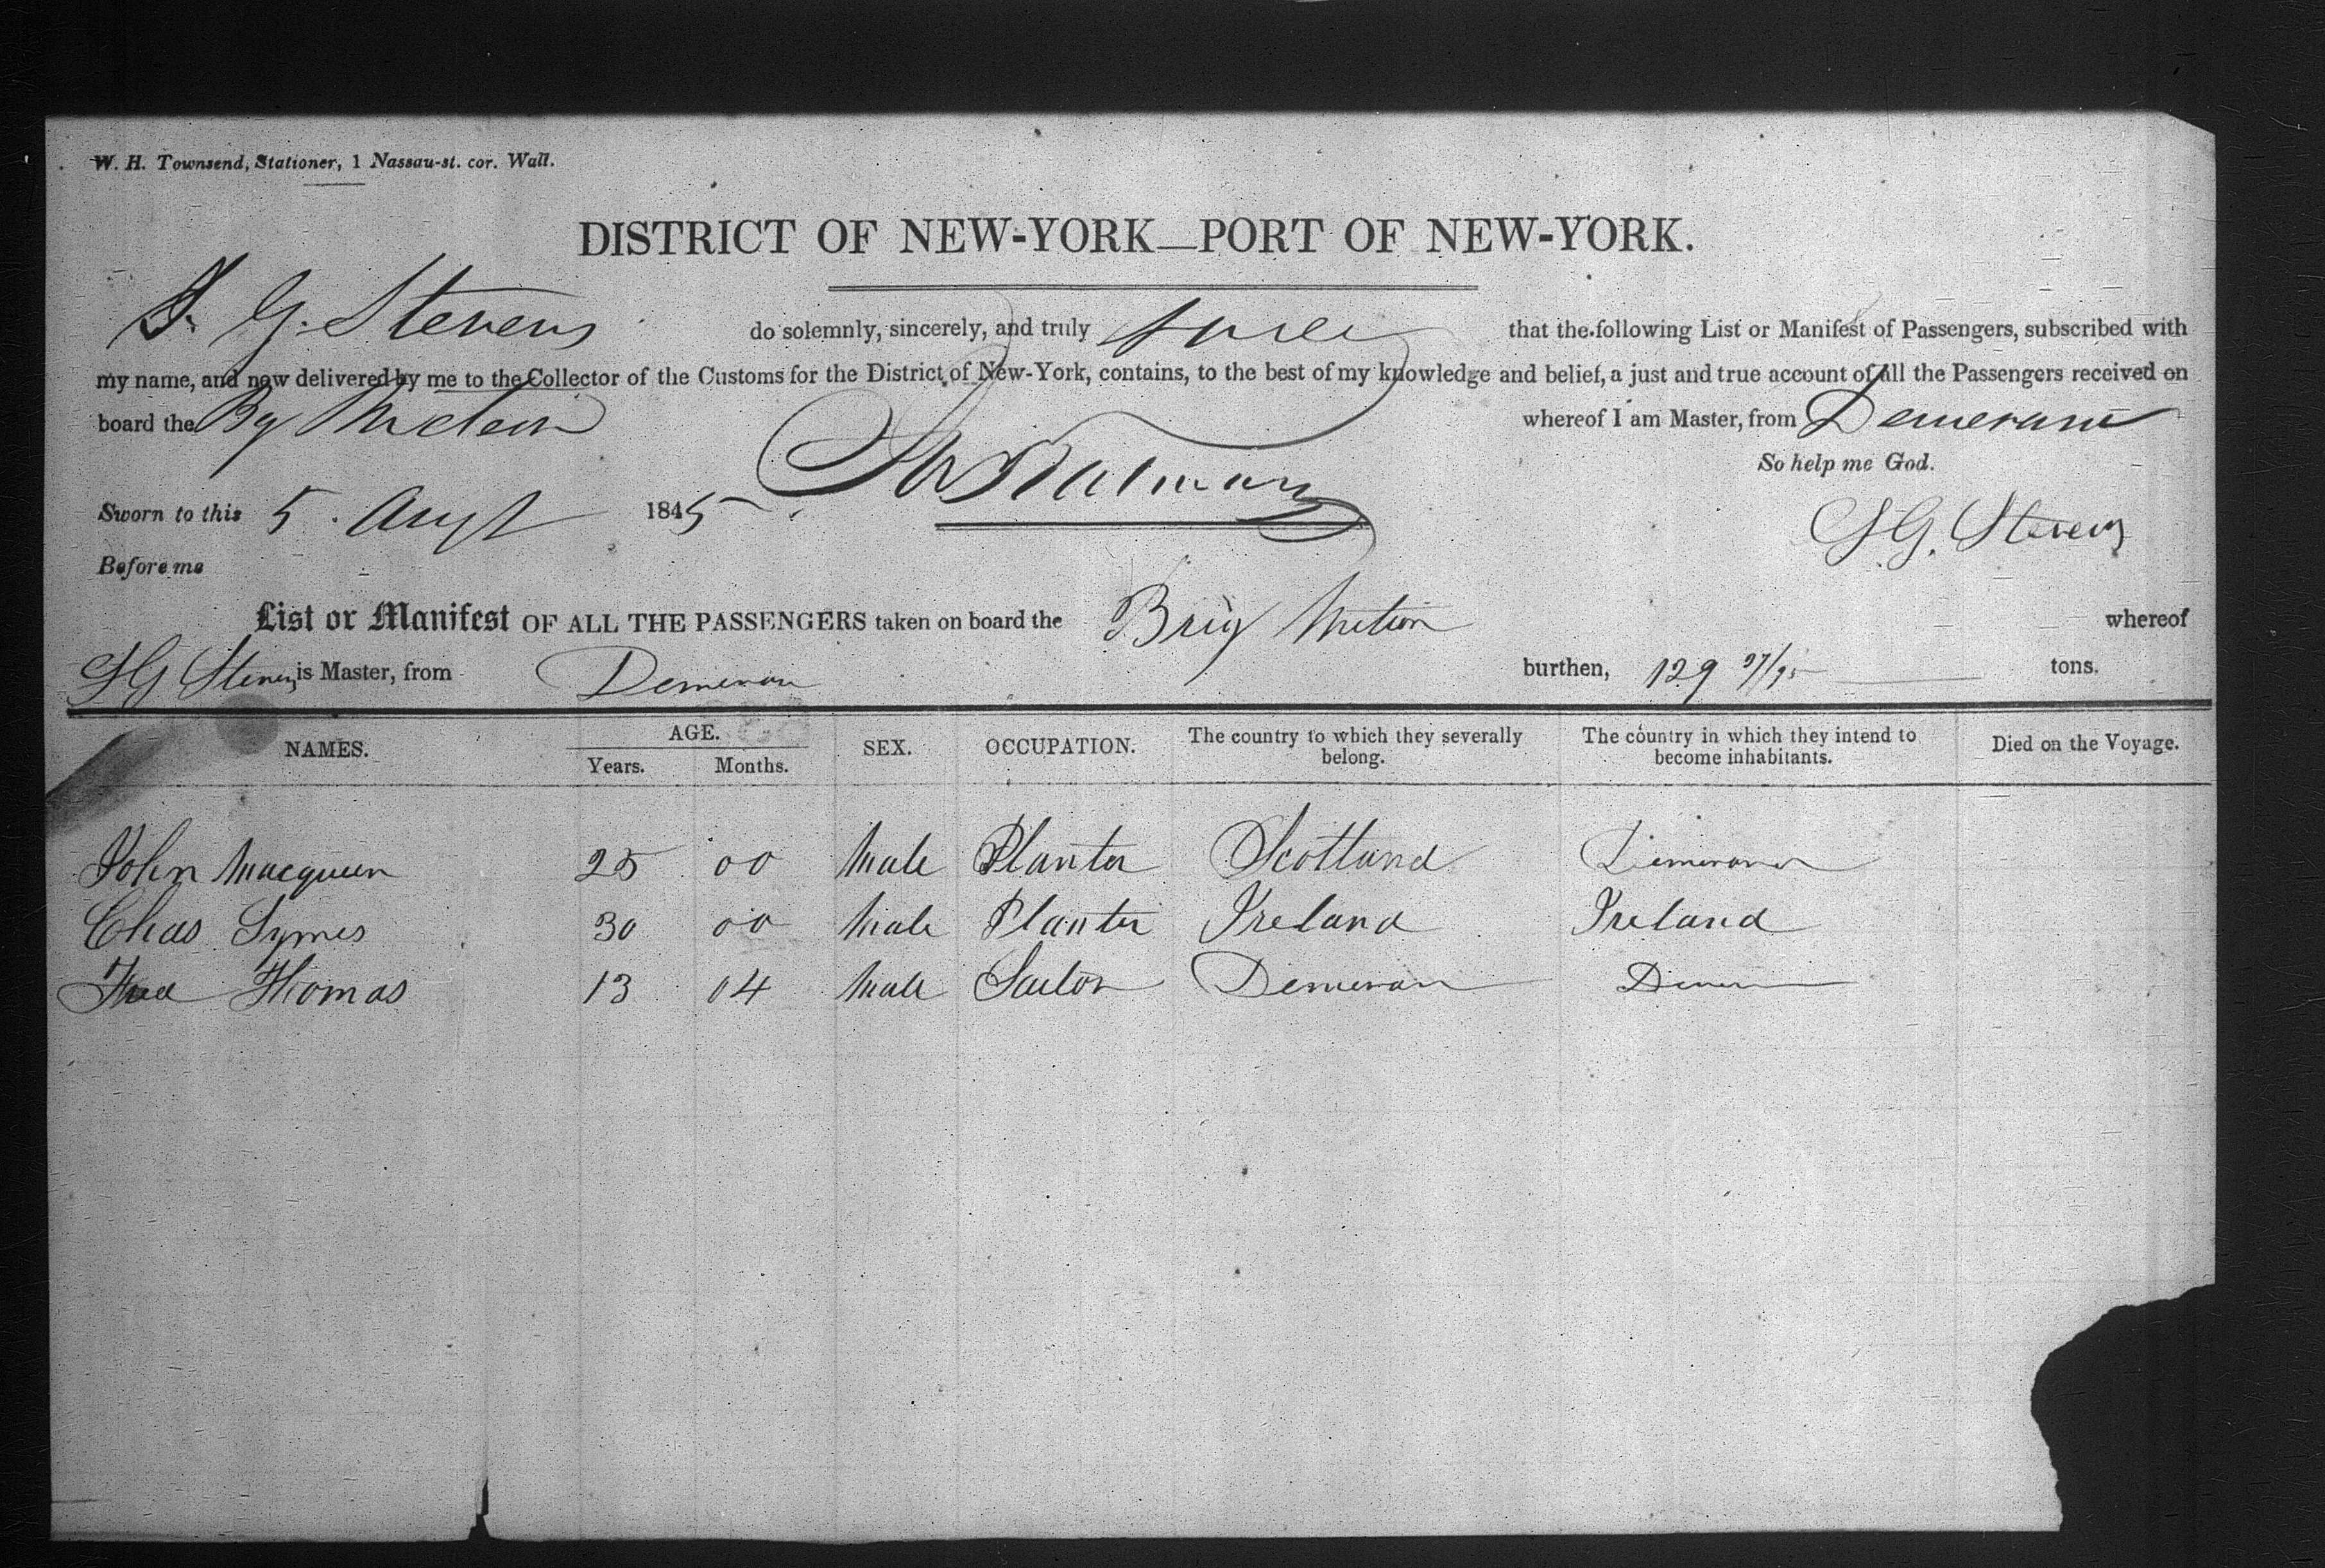 W. H. Townsend, Stationer, 1 Nassau-st. cor. Wall.
DISTRICT OF NEW-YORK—PORT OF NEW-YORK.
G. Stevens do solemnly, sincerely, and truly that the following List or Manifest of Passengers, subscribed with
my name, and now delivered by me to the Collector of the Customs for the District of New-York, contains, to the best of my knowledge and belief, a just and true account of all the Passengers received on
board the whereof I am Master, from Demerara
So help me God.
Sworn to this 5 Augt 1845
G. Stevens
Before me
List or Manifest OF ALL THE PASSENGERS taken on board the Brig whereof
G Stevens is Master, from Demerara burthen, 129 tons.
NAMES. AGE. Years. Months. SEX. OCCUPATION. The country to which they severally belong. The country in which they intend to become inhabitants. Died on the Voyage.
John Macqueen 25 00 Male Planter Scotland Demerara
Chas Symes 30 00 Male Planter Ireland Ireland
Thomas 13 04 Male Sailor Demerara